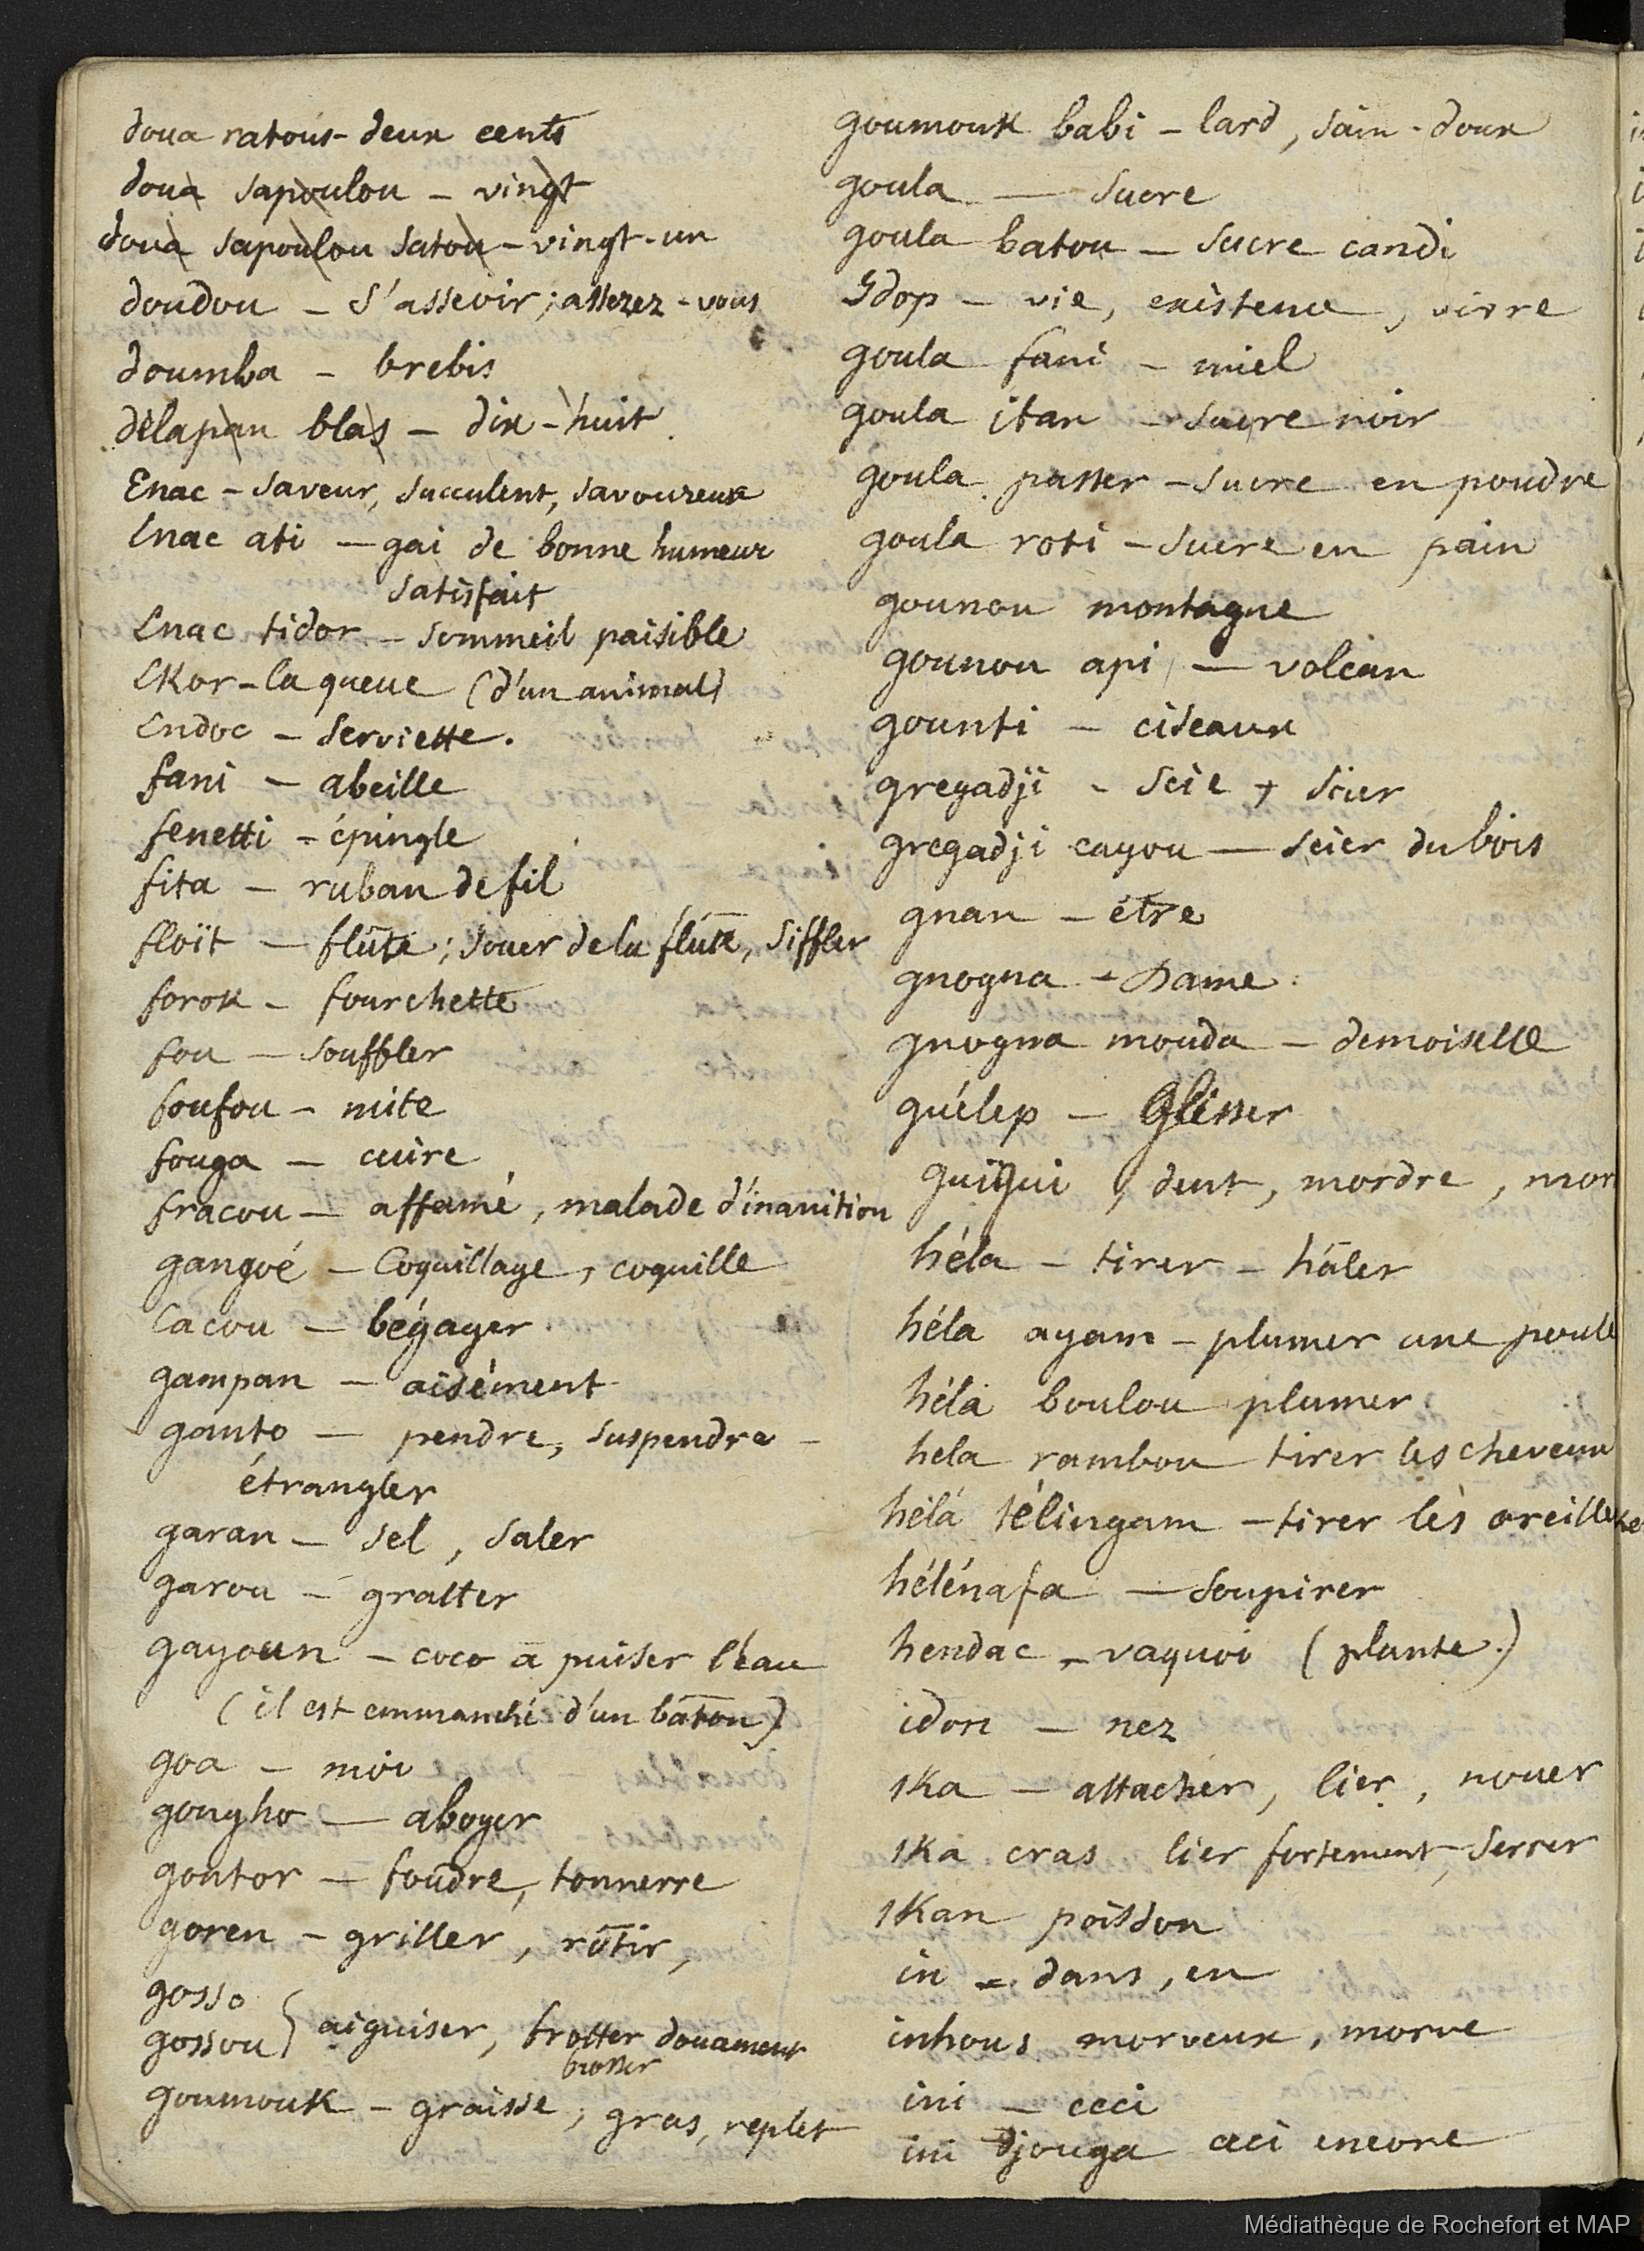 doua ratous - deux cents
doua sapoulou - vingt
doua sapoulou satou - vingt-un
doudou - s'asseoir ; assezez-vous
doumba - brebis
délapan blas - dix-huit
Enac - saveur, succulent, savoureux
Enac ati - gai de bonne humeur
satisfait
Enac tidor - sommeil paisible
EKor - la queue (d'un animal)
Endoc - serviette.
fani - abeille
fenetti - épingle
fita - ruban de fil
floït - flûte ; jouer de la flûte, siffler
forok - fourchette
fou - souffler
foufou - mite
fouga - cuire
fracou - affamé, malade d'inanition
gangoé - Coquillage, coquille
cacou - bégayer
gampan - aisément
ganto - pendre, suspendre -
étrangler
garan - sel, saler
garou - gratter
gayoun - coco à puiser l'eau
(il est emmanché d'un bâton)
goa - moi
gongho - aboyer
gontor - foudre, tonnerre
goren - griller, rôtir,
gosso
gossou } aiguiser, frotter douament
brosser
goumouk - graisse, gras, replet
goumouk babi - lard, sain-doux
goula - sucre
goula batou - sucre candi
Gdop - vie, existence, vivre
goula fani - miel
goula itan - sucre noir
goula passer - sucre en poudre
goula roti - sucre en pain
gounou montagne
gounou api - volcan
gounti - ciseaux
gregadji - scie + scier
gregadji cayou - scier du bois
gnan - être
gnogna - Dame
gnogna mouda - demoiselle
guélep - Glisser
guigui, dent, mordre, mor
héla - tirer - hâler
héla ayam - plumer une poule
héla boulou plumer
hela rambou tirer les cheveux
hélà télingam - tirer les oreilles
hélénafa - soupirer
hendac - vaquoi (plante.)
idon - nez
iKa - attacher, lier, nouer
iKa cras lier fortement, serrer
iKan poisson
in - dans, en
inhous morveux, morve
ini - ceci
ini djouga ceci encore
Médiathèque de Rochefort et MAP